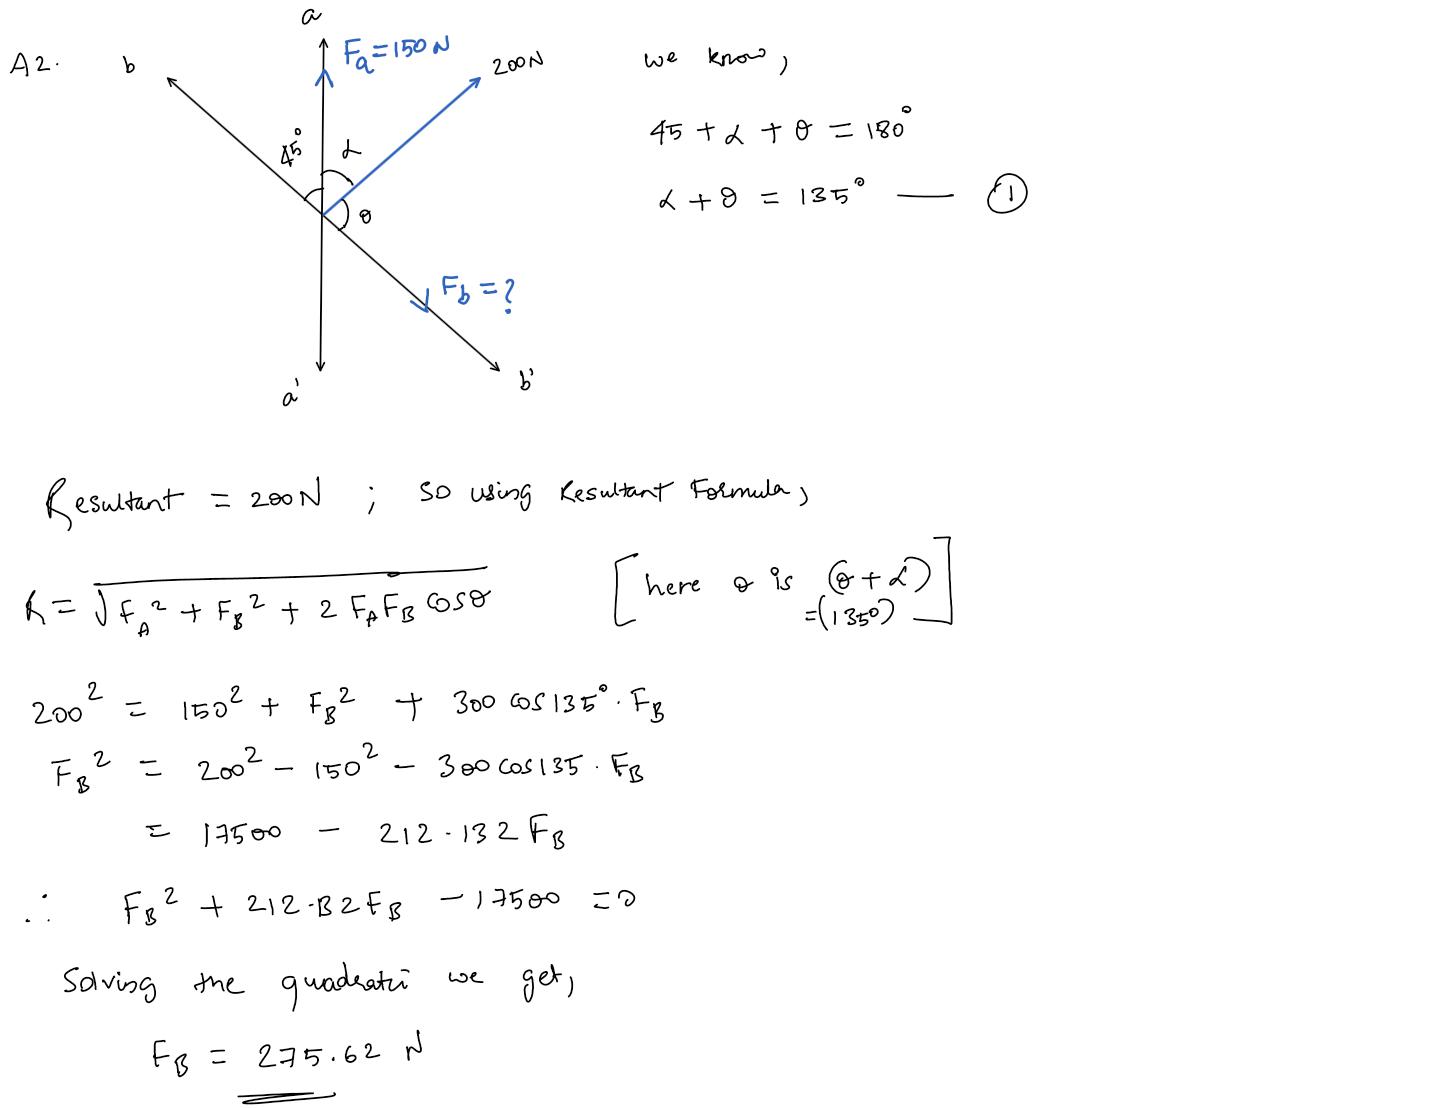 A2.
b
a
Fa = 150 N
200N
45°
α
θ
Fb = ?
a'
b'
we know,
45 + α + θ = 180°
α + θ = 135° — ①
Resultant = 200N ; so using Resultant Formula,
R = √F_A² + F_B² + 2 F_A F_B cosθ
[here θ is (θ + α) =(135°)]
200² = 150² + F_B² + 300 cos 135° · F_B
F_B² = 200² - 150² - 300 cos 135 · F_B
= 17500 - 212.132 F_B
∴ F_B² + 212.132 F_B - 17500 = 0
Solving the quadratic we get,
F_B = 275.62 N